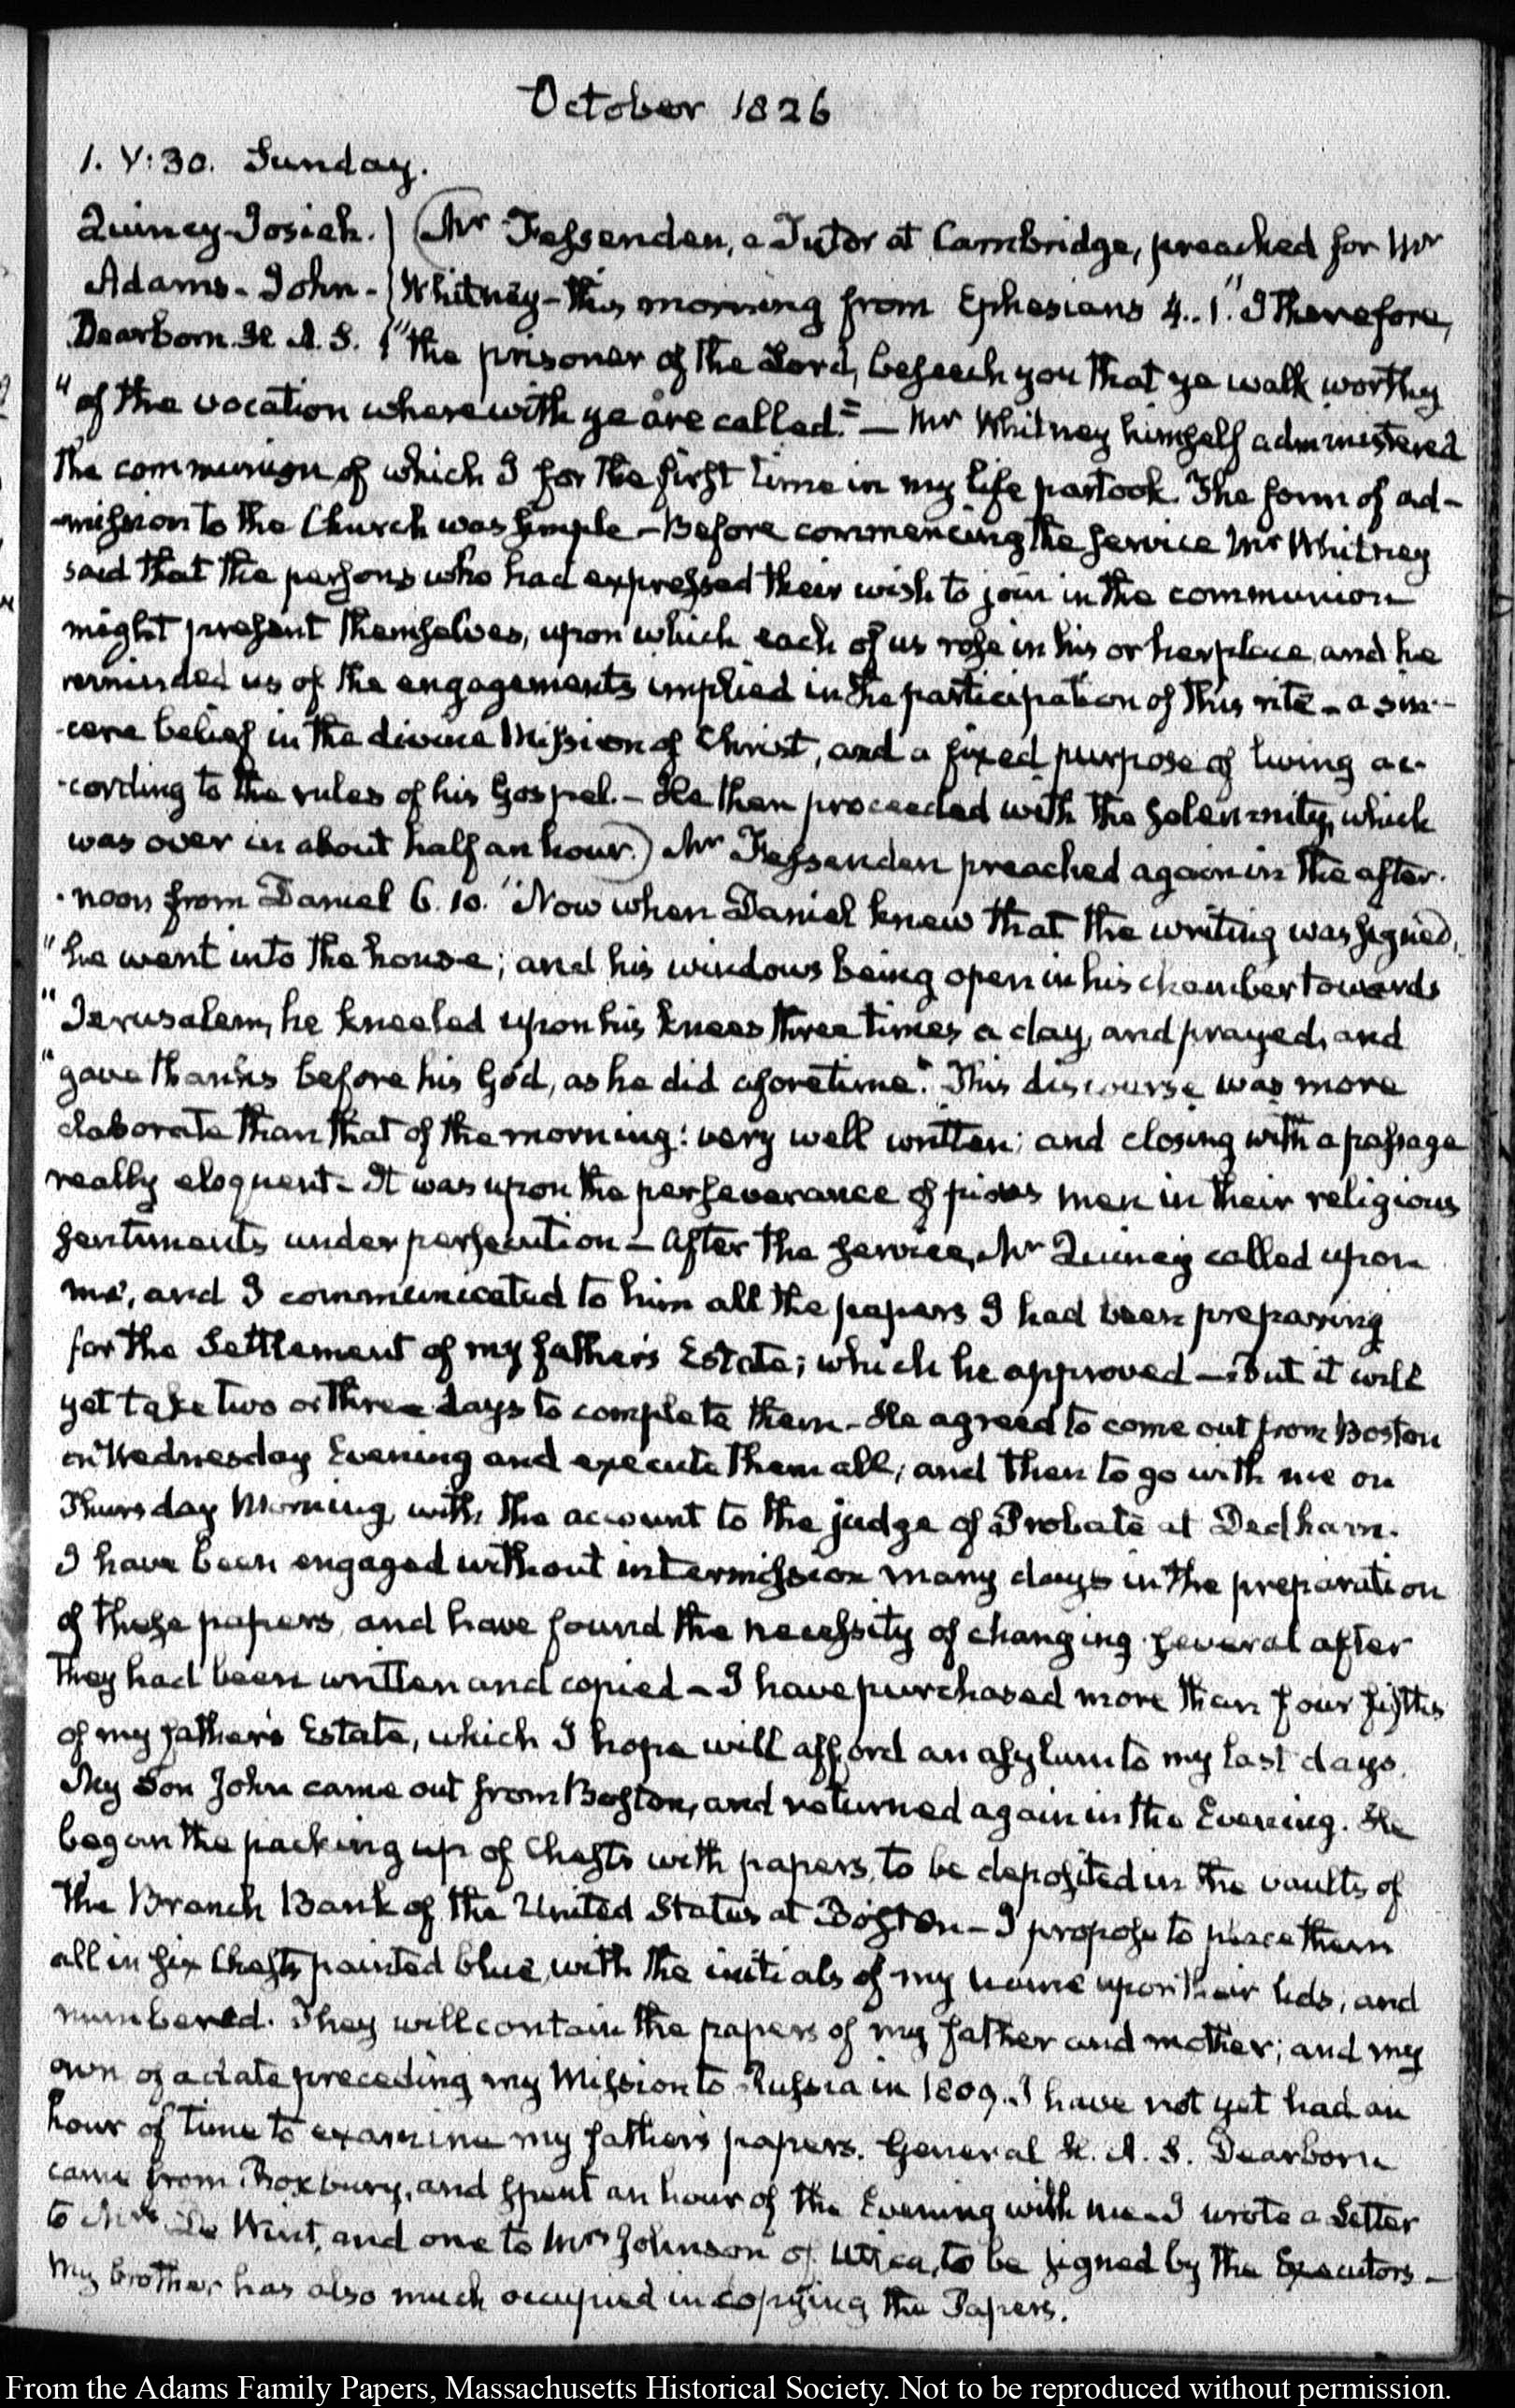 October 1826
1. V:30. Sunday.
Quincy-Josiah. } (Mr Fessenden, a Tutor at Cambridge, preached for Mr
Adams-John- } Whitney-this morning from Ephesians 4..1. "I therefore,
Dearborn. H. A. S. } "the prisoner of the Lord, beseech you that ye walk worthy
"of the vocation wherewith ye are called."— Mr Whitney himself administered
the communion of which I for the first time in my life partook. The form of ad-
-mission to the Church was simple—Before commencing the service Mr Whitney
said that the persons who had expressed their wish to join in the communion
might present themselves, upon which each of us rose in his or her place, and he
reminded us of the engagements implied in the participation of this rite—a sin-
-cere belief in the divine Mission of Christ, and a fixed purpose of living ac-
-cording to the rules of his Gospel.—He then proceeded with the solemnity, which
was over in about half an hour.) Mr Fessenden preached again in the after-
-noon from Daniel 6.10. "Now when Daniel knew that the writing was signed,
"he went into the house; and his windows being open in his chamber towards
"Jerusalem, he kneeled upon his knees three times a day, and prayed, and
"gave thanks before his God, as he did aforetime." This discourse was more
elaborate than that of the morning: very well written; and closing with a passage
really eloquent—It was upon the perseverance of pious men in their religious
sentiments under persecution—After the service, Mr Quincy called upon
me, and I communicated to him all the papers I had been preparing
for the Settlement of my father's Estate; which he approved—But it will
yet take two or three days to complete them—He agreed to come out from Boston
on Wednesday Evening and execute them all, and then to go with me on
Thursday Morning, with the account to the judge of Probate at Dedham.
I have been engaged without intermission many days in the preparation
of these papers, and have found the necessity of changing several after
they had been written and copied—I have purchased more than four fifths
of my father's Estate, which I hope will afford an asylum to my last days.
My Son John came out from Boston, and returned again in the Evening. He
began the packing up of Chests with papers, to be deposited in the vaults of
the Branch Bank of the United States at Boston—I propose to place them
all in six Chests painted blue, with the initials of my name upon their lids, and
numbered. They will contain the papers of my father and mother; and my
own of a date preceding my Mission to Russia in 1809. I have not yet had an
hour of time to examine my father's papers. General H. A. S. Dearborn
came from Roxbury, and spent an hour of the Evening with me—I wrote a Letter
to De Wint, and one to Mrs Johnson of Utica, to be signed by the Executors—
My brother has also much occupied in copying the Papers.
From the Adams Family Papers, Massachusetts Historical Society. Not to be reproduced without permission.